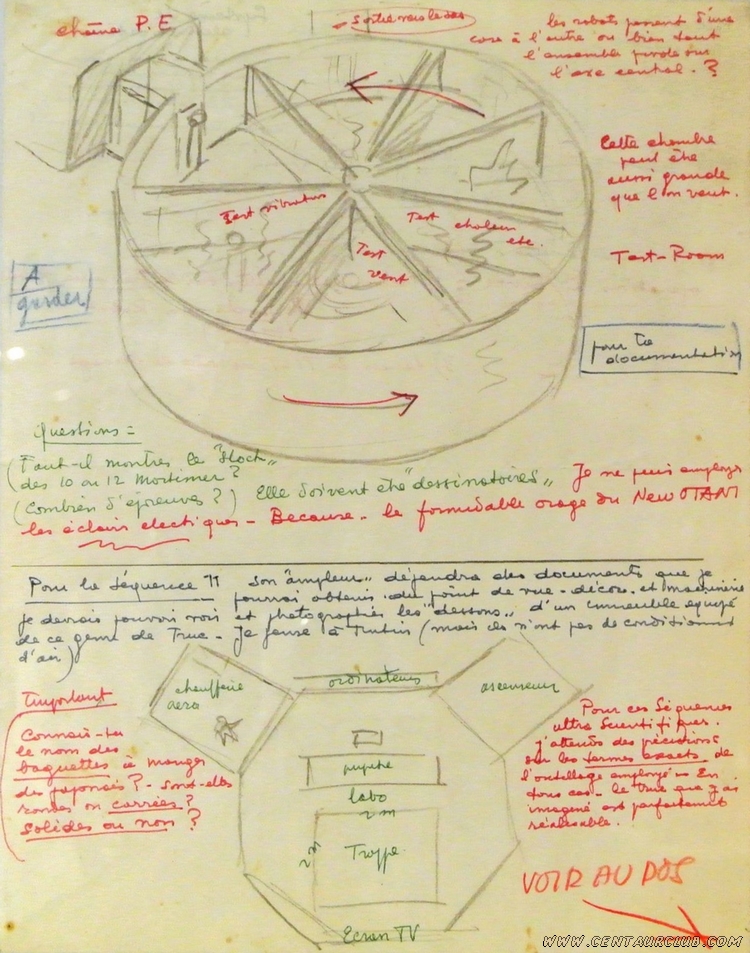 chaîne P.E
Sortie vers le sas
les robots passent d'une
case à l'autre ou bien tout
l'ensemble pivote sur
l'axe central. ?
Cette chambre
peut être
aussi grande
que l'on veut.
Test vibrations
Test chaleur
etc.
Test
vent
Test-Room
A
garder
pour ta
documentation
Questions =
(Faut-il montrer le "stock"
des 10 ou 12 Mortimer ?
(Combien d'épreuves ?) Elle doivent être "dessinatoires" Je ne puis employer
les éclairs électriques - Because - le formidable orage du New OTANI
Pour la séquence 11 son "ampleur" dépendra des documents que je
pourrai obtenir du point de vue - décor - et machinerie
je devrais pouvoir voir et photographier les "dessous" d'un immeuble équipé
de ce genre de Truc - Je pense à (mais ils n'ont pas de conditionnt
d'air)
chaufferie
aero
ordinateurs
ascenseurs
pupitre
labo
2 m
2 m
Trappe
Ecran TV
Important
Connais-tu
le nom des
baguettes à manger
des japonais ? - sont-elles
rondes ou carrées ?
solides ou non ?
Pour ces séquences
ultra scientifiques.
j'attends des précisions
sur les termes exacts de
l'outillage employé - En
tous cas - le truc que j'ai
imaginé est parfaitement
réalisable.
VOIR AU DOS
WWW.CENTAURCLUB.COM